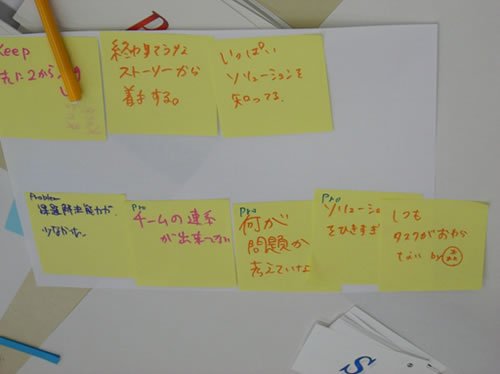 Keep
終わりそうな
ストーリーから
着手する。
いっぱい
ソリューションを
知ってる
Problem
少なかった
Pro
チームの連系
が出来てない
Pro
何が
問題か
考えていない
Pro
ソリューショ
をひきすぎ
いつも
タスクがおわら
ない by
S